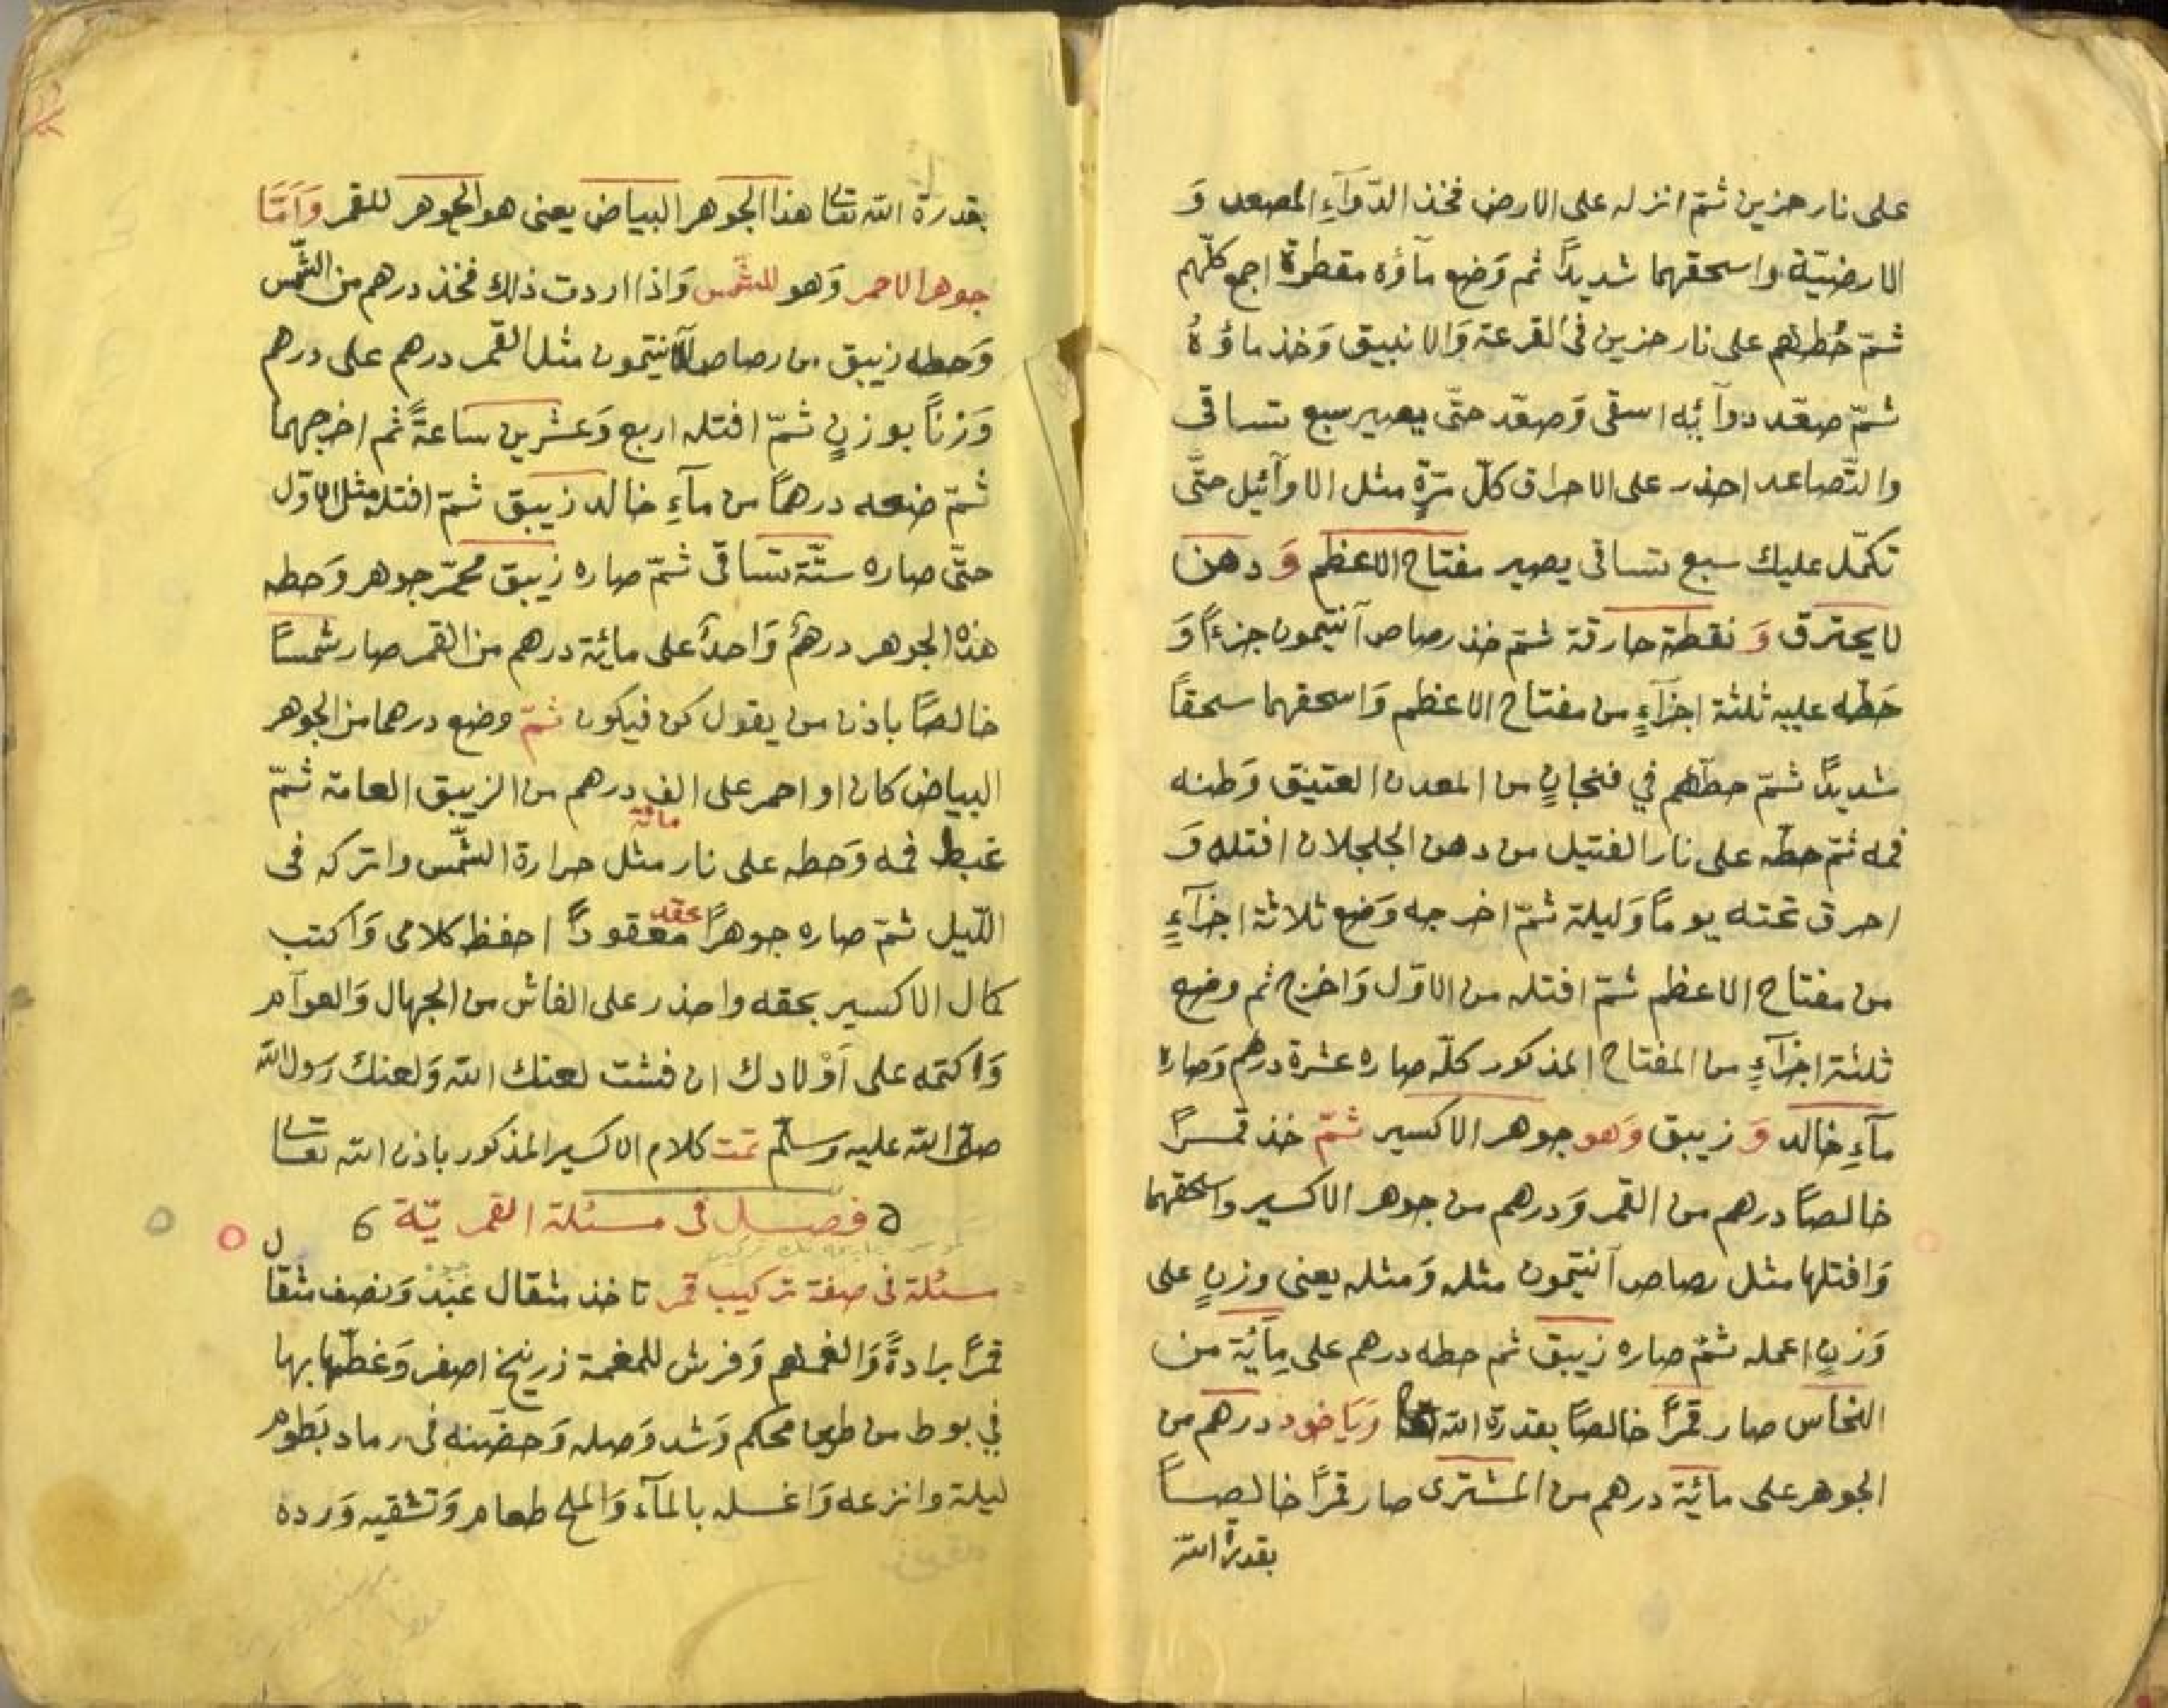 على نار حزين ثمّ انزله على الارض فخذ الدّوآءِ المصعد وَ
الارضيّة واسحقهما شديدًا ثم وَضع مآؤه مقطرة اجمع كلّهم
ثمّ حُطهم على نار حزين فى القرعة وَالانبيق وَخذ ماؤهُ
ثمّ صعّد دوآئِه اسقى وَصعّد حتّى يصير سبع تساقى
والتّصاعد احذر على الاحراق كلّ مَرّةٍ مثل الاوآئيل حتَّى
تكمّل عليك سبع تساقى يصير مفتاح الاعظم وَ دهن
لا يحترق وَ نقطة حارقة ثمّ خذ رصاص آنتيمون جزءًا وَ
حَطّه عليه ثلثة اجزآءٍ من مفتاح الاعظم وَاسحقهما سحقًا
شديدًا ثمّ حطّهم في فنجانٍ من المعدن العتيق وَطنه
فمه ثمّ حطّه على نار الفتيل من دهن الجلجلان افتله وَ
احرق تحته يومًا وَليلة ثمّ اخرجه وَضع ثلاثة اجزآءٍ
من مفتاح الاعظم ثمّ افتله من الاوّل وَاخرج ثم وضع
ثلثة اجزآءٍ من المفتاح المذكور كلّه صاره عشرة درهم وَصاره
مآءِ خالد وَ زيبق وَهو جوهر الاكسير ثمّ خذ قمرًا
خالصًا درهم من القمر وَدرهم من جوهر الاكسير واسحقهما
وَافتلها مثل رصاص آنتيمون مثله وَمثله يعنى وزنٍ على
وَزنٍ اعمله ثمّ صاره زيبق ثم حطه درهم على مِآئِة من
النحاس صار قمرًا خالصًا بقدرة الله وَيَاخود درهم من
الجوهر على مائِة درهم من المشترى صار قمرًا خالصًا
بقدرة الله
بقدرة الله تعالى هذا الجوهر البياض يعنى هو الجوهر للقمر وَاَمّا
جوهر الاحمر وَهو للشّمس وَاذا اردت ذلك فخذ درهم من الشّمس
وَحطه زيبق من رصاص الآنتيمون مثل القمر درهم على درهم
وَزنًا بوزنٍ ثمّ افتله اربع وَعشرين ساعةً ثم اخرجهما
ثمّ ضعه درهمًا من مآءِ خالد زيبق ثمّ افتله مثل الاوّل
حتّى صاره ستّة تساقى ثمّ صاره زيبق محمّر جوهر وَحطه
هذه الجوهر درهمً وَاحدً على مائة درهم من القمر صار شمسًا
خالصًا باذن من يقول كن فيكون ثمّ وضع درهما من الجوهر
البياض كان او احمر على الف درهم من الزيبق العامّة ثمّ
مائة
غبط فمه وَحطه على نار مثل حرارة الشّمس واتركه فى
اللّيل ثمّ صاره جوهرًا معقودًا احفظ كلامى وَاكتب
عقد
كمال الاكسير بحقه واحذر على الفاش من الجهال وَالعوآم
وَاكتمه على اَوْلادك ان فشت لعنك الله وَلعنك رسول الله
صلى الله عليه وسلّم تمت كلام الاكسير المذكور باذن الله تعالى
فصل فى مسئلة القمريّة
مسئلة فى صفة تركيب قمر تاخذ مثقال عَبْد وَنصف مثقال
قمرًا برادةً وَالغمهم وَفرش للمغمة زرنيخ اصفر وَغطّيها بها
في بوط من طين محكم وَشد وَصله وَحضنه فى رماد بَطوم
ليلة وانزعه وَاغسله بالمآء وَالملح طعام وَتشقيه وَرده